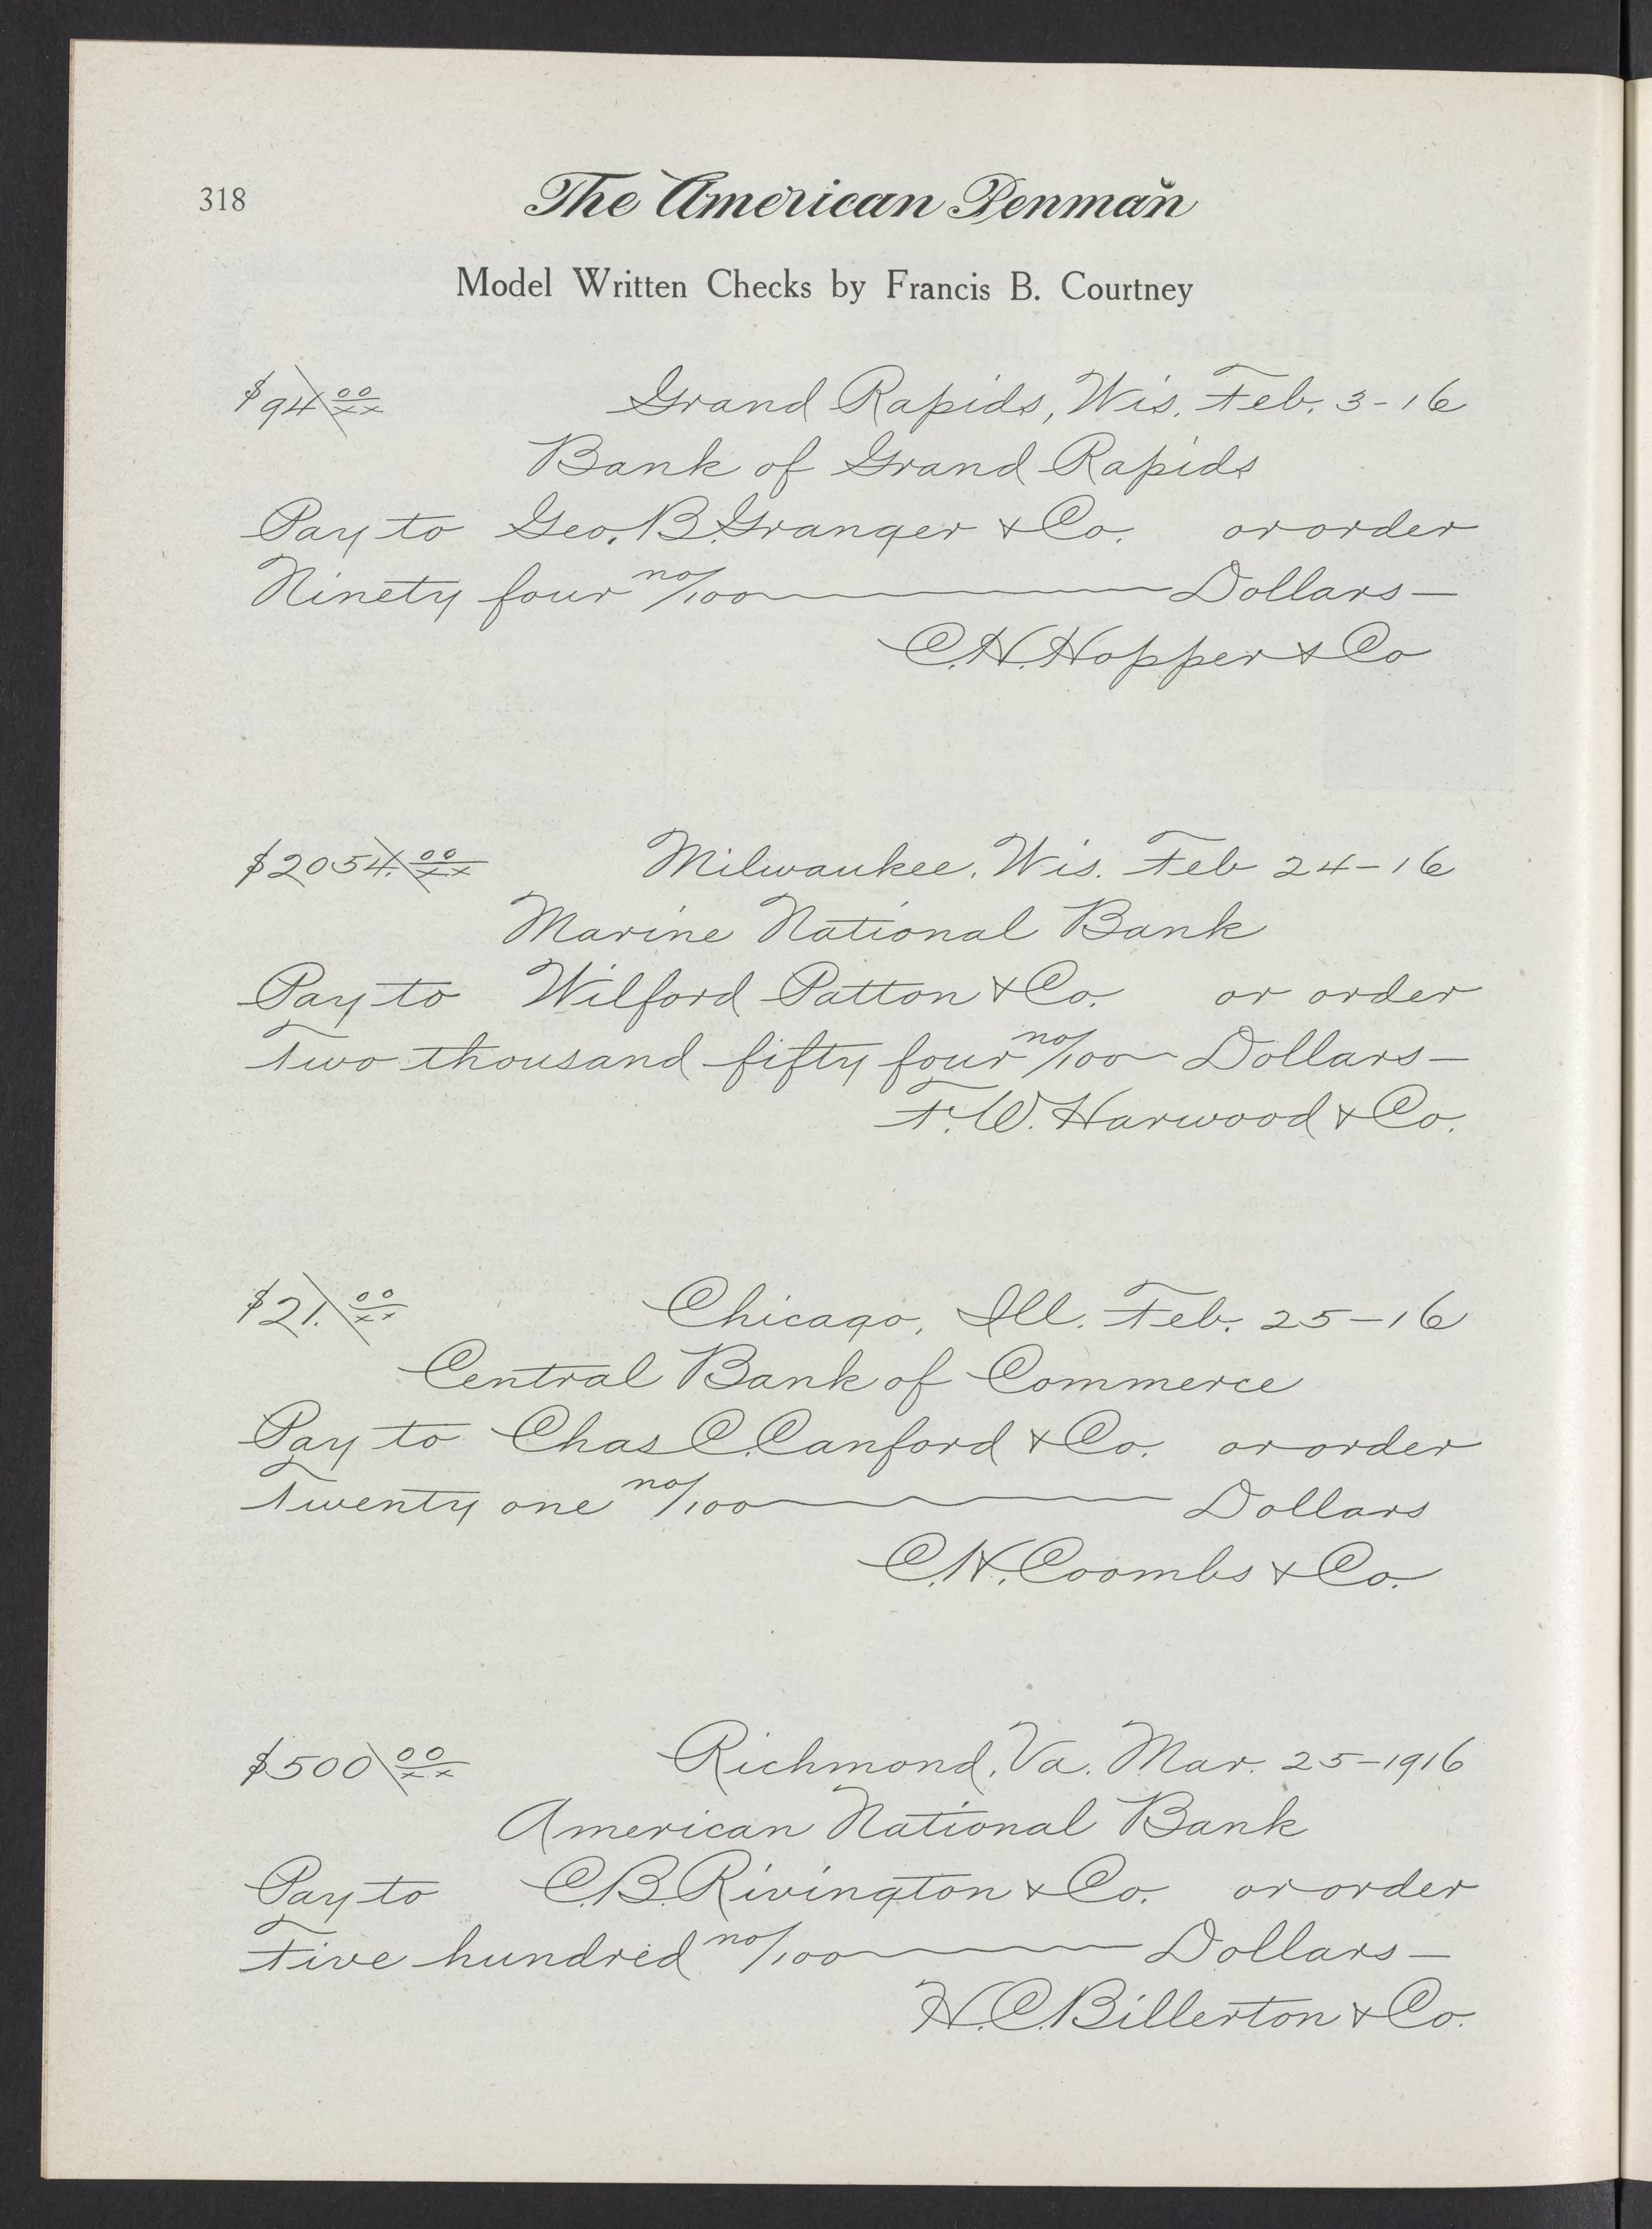 318
The American Penman
Model Written Checks by Francis B. Courtney
$94 00/xx Grand Rapids, Wis. Feb. 3-16
Bank of Grand Rapids
Pay to Geo. B. Granger & Co. or order
Ninety four no/100 Dollars—
C.H. Hopper & Co
$2054. 00/xx Milwaukee, Wis. Feb 24-16
Marine National Bank
Pay to Wilford Patton & Co. or order
Two thousand fifty four no/100 Dollars—
F. W. Harwood & Co.
$21. 00/xx Chicago, Ill. Feb. 25-16
Central Bank of Commerce
Pay to Chas C. Canford & Co. or order
Twenty one no/100 Dollars
C.H. Coombs & Co.
$500 00/xx Richmond, Va. Mar. 25-1916
American National Bank
Pay to C.B. Rivington & Co. or order
Five hundred no/100 Dollars—
H.C. Billerton & Co.